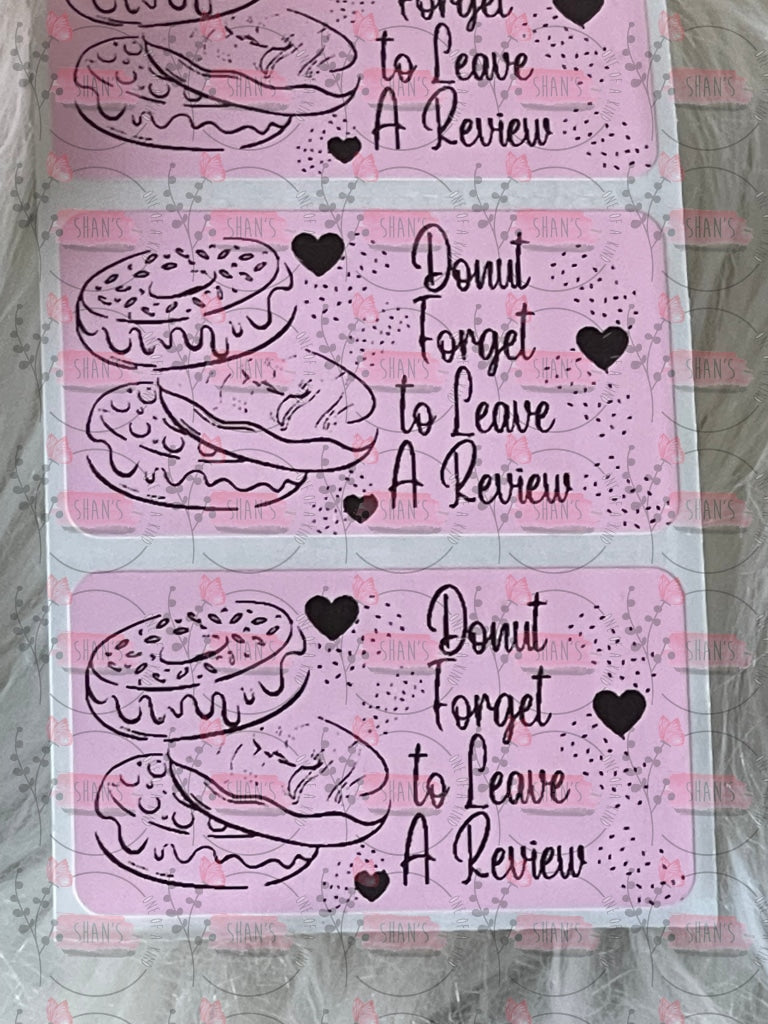 Forget
to Leave
A Review
Donut
Forget
to Leave
A Review
Donut
Forget
to Leave
A Review
SHAN'S
ONE OF A KIND